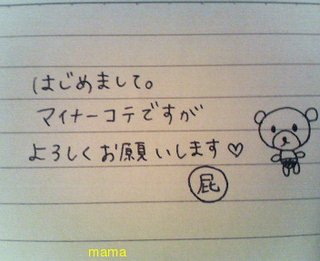 はじめまして。
マイナーコテですが
よろしくお願いします♡
屁
mama